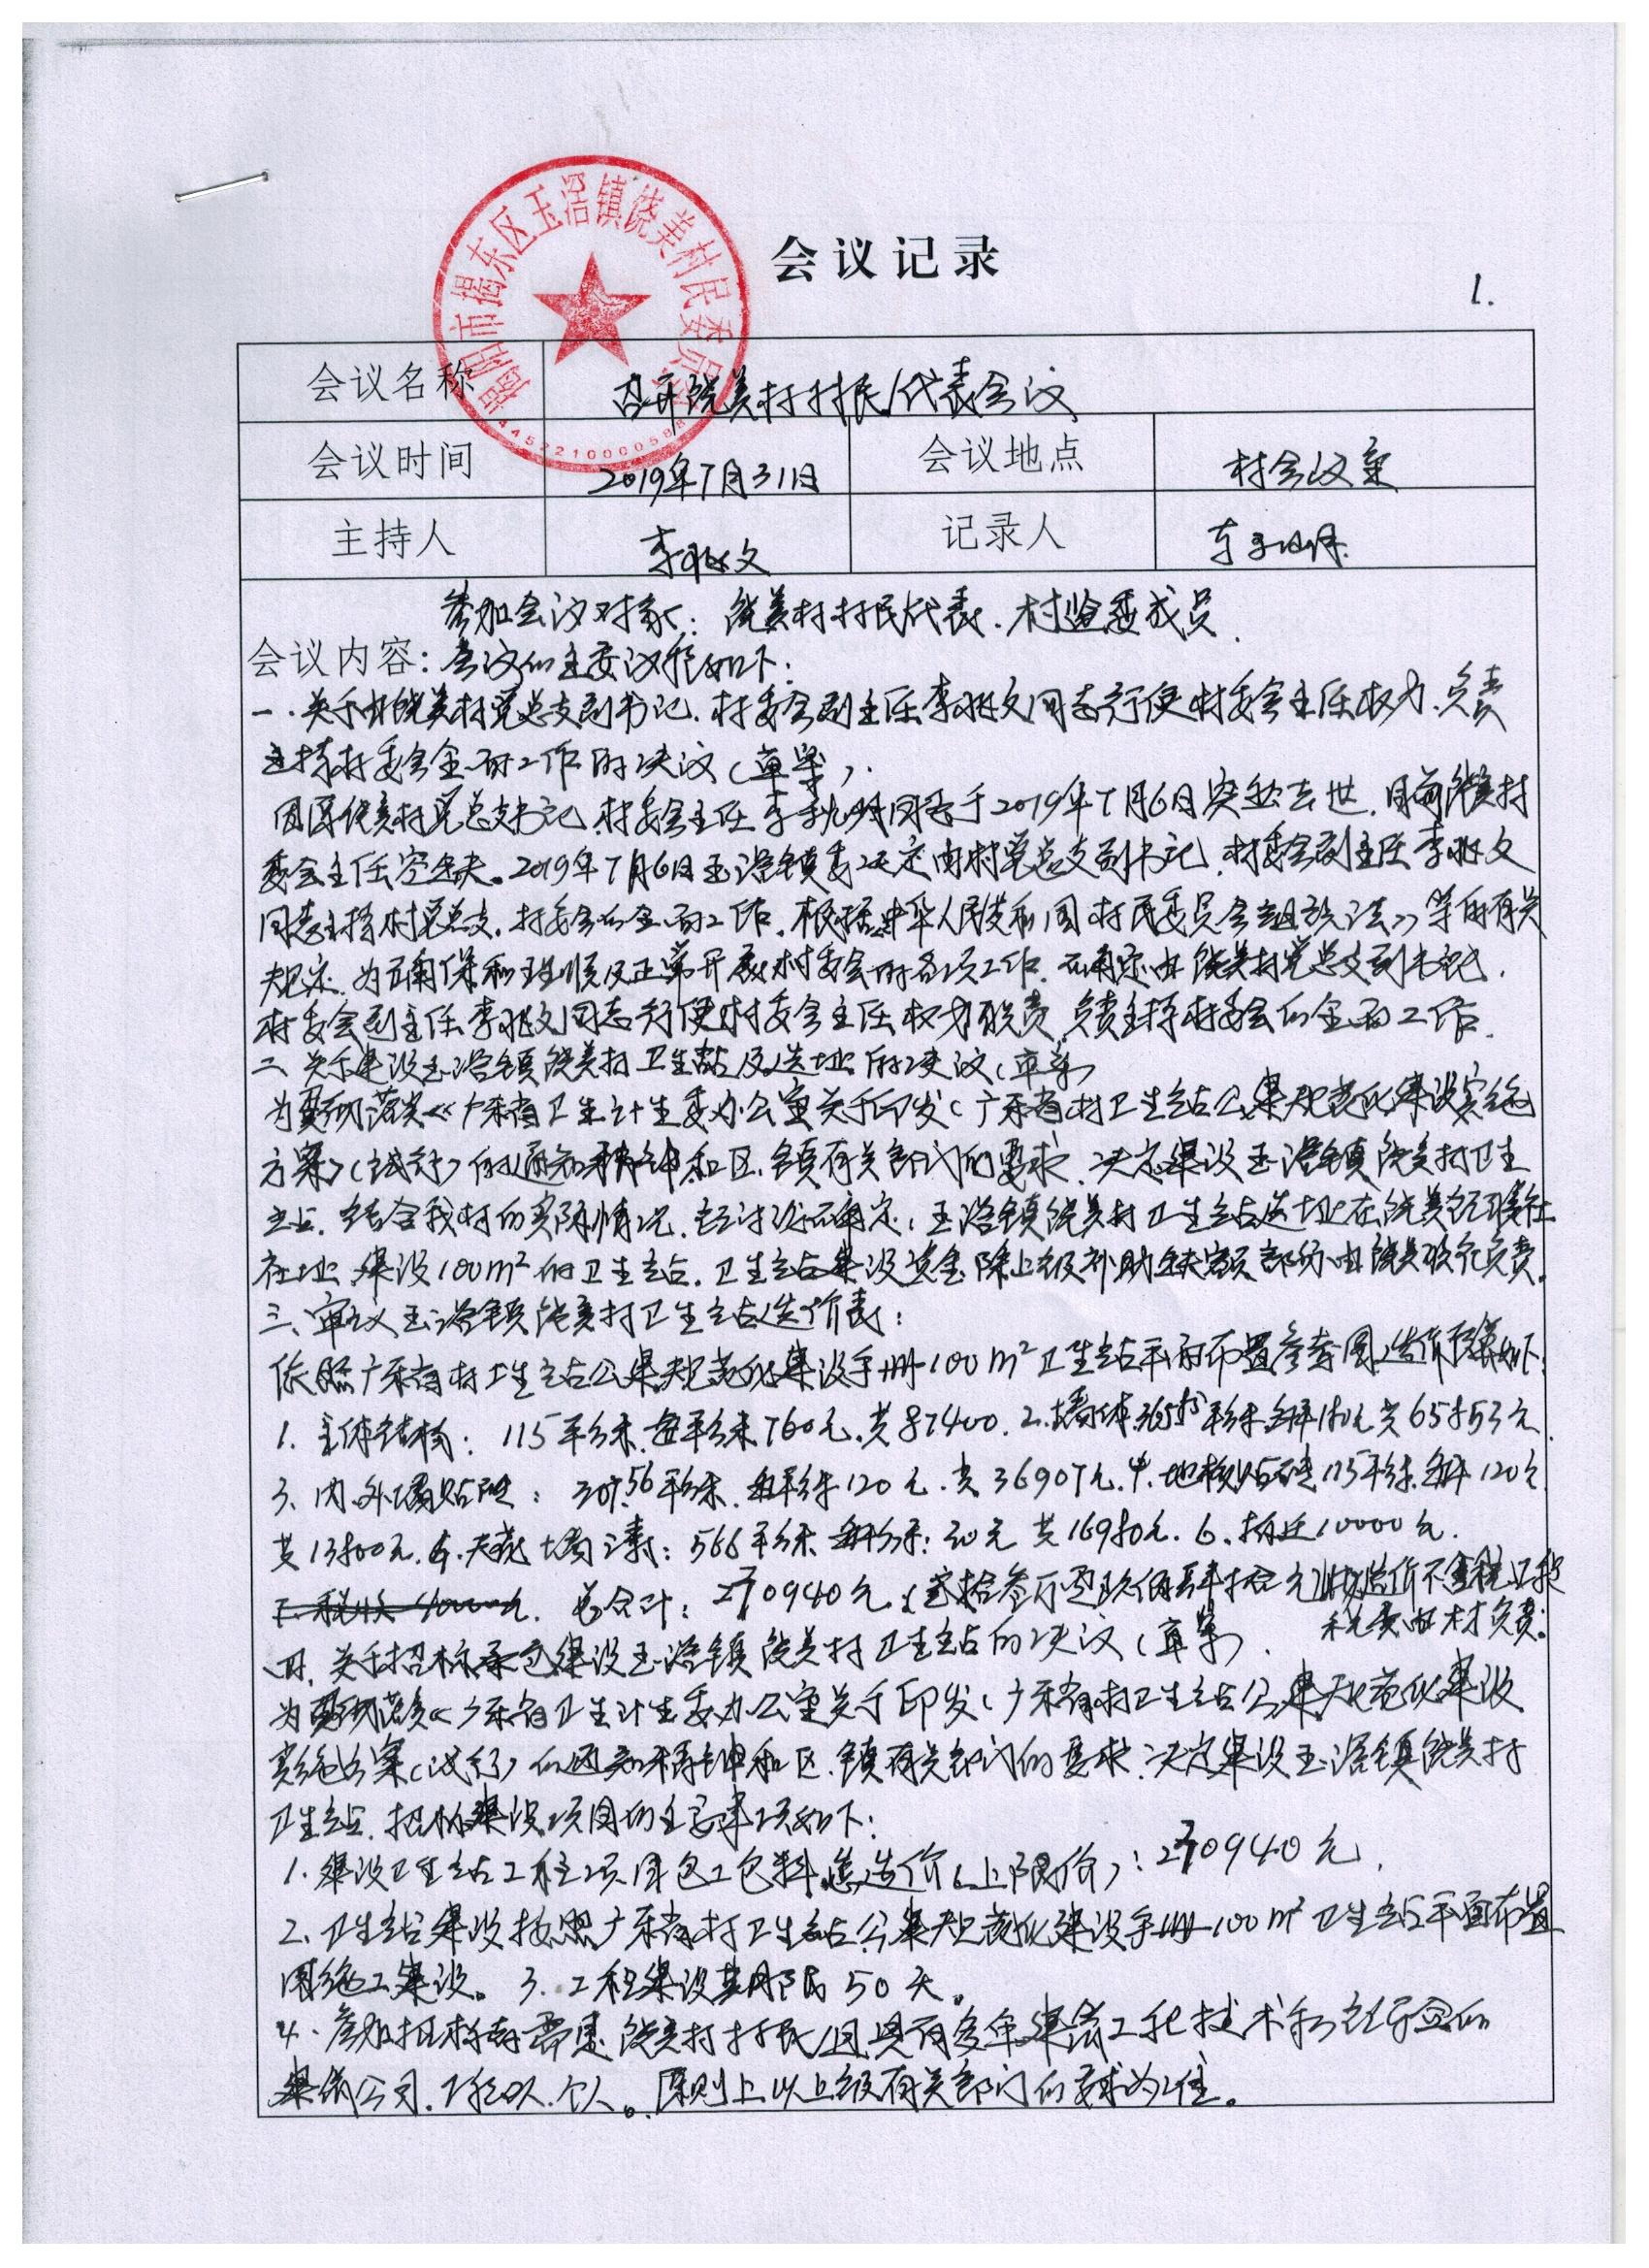 揭阳市揭东区玉滘镇饶美村民委员会
会议记录
1.
会议名称 召开饶美村村民代表会议
会议时间 2019年7月31日 会议地点 村会议室
主持人 李兆文 记录人
参加会议对象：饶美村村民代表、村监委成员.
会议内容：会议的主要议程如下：
一、关于由饶美村党总支副书记、村委会副主任李兆文同志行使村委会主任权力、负责
主持村委会全面工作的决议（草案）.
因原饶美村党总支书记、村委会主任李明同志于2019年7月6日突然去世，目前饶美村
委会主任空缺。2019年7月6日玉滘镇委决定由村党总支副书记、村委会副主任李兆文
同志主持村党总支、村委会的全面工作。根据中华人民共和国村民委员会组织法》等的有关
规定，为确保和理顺及正常开展村委会的各项工作，确定由饶美村党总支副书记、
村委会副主任李兆文同志行使村委会主任权力职责，负责主持村委会的全面工作.
二、关于建设玉滘镇饶美村卫生站及选址的决议（草案）
为贯彻落实《广东省卫生计生委办公室关于印发（广东省村卫生站公建规范化建设实施
方案）（试行）的通知精神和区、镇有关部门的要求，决定建设玉滘镇饶美村卫生
站，结合我村的实际情况，经讨论确定，玉滘镇饶美村卫生站选址在饶美经联社
社址，建设100m²的卫生站，卫生站建设资金除上级补助缺额部分由饶美村负责。
三、审议玉滘镇饶美村卫生站造价表：
依照广东省村卫生站公建规范化建设手册100m²卫生站平面布置参考图，造价预算如下：
1. 主体结构：115平方米，每平方米760元，共87400. 2.墙体365.85平方米，每平180元共65853元.
3、内、外墙贴砖：307.56平方米，每平方米120元，共36907元. 4.地板贴砖115平方米，每平120元
共13800元. 5.天花墙漆：566平方米 每平方米：30元 共16980元. 6、拆迁10000元.
总合计：230940元.（贰拾叁万零玖佰肆拾元）此总价不含税，工程
税费由村负责.
四、关于招标承包建设玉滘镇饶美村卫生站的决议（草案）.
为贯彻落实《广东省卫生计生委办公室关于印发（广东省村卫生站公建规范化建设
实施方案（试行）的通知精神和区、镇有关部门的要求，决定建设玉滘镇饶美村
卫生站，招标建设项目的主要事项如下：
1.建设卫生站工程项目包工包料总造价（上限价）：230940元.
2.卫生站建设按照广东省村卫生站公建规范化建设手册100m²卫生站平面布置
图施工建设。3.工程建设期限50天。
4.参加招标者需是饶美村村民，且具有多年建筑工程技术和经验的
建筑公司、工程队、个人。原则上以上级有关部门的要求为准。